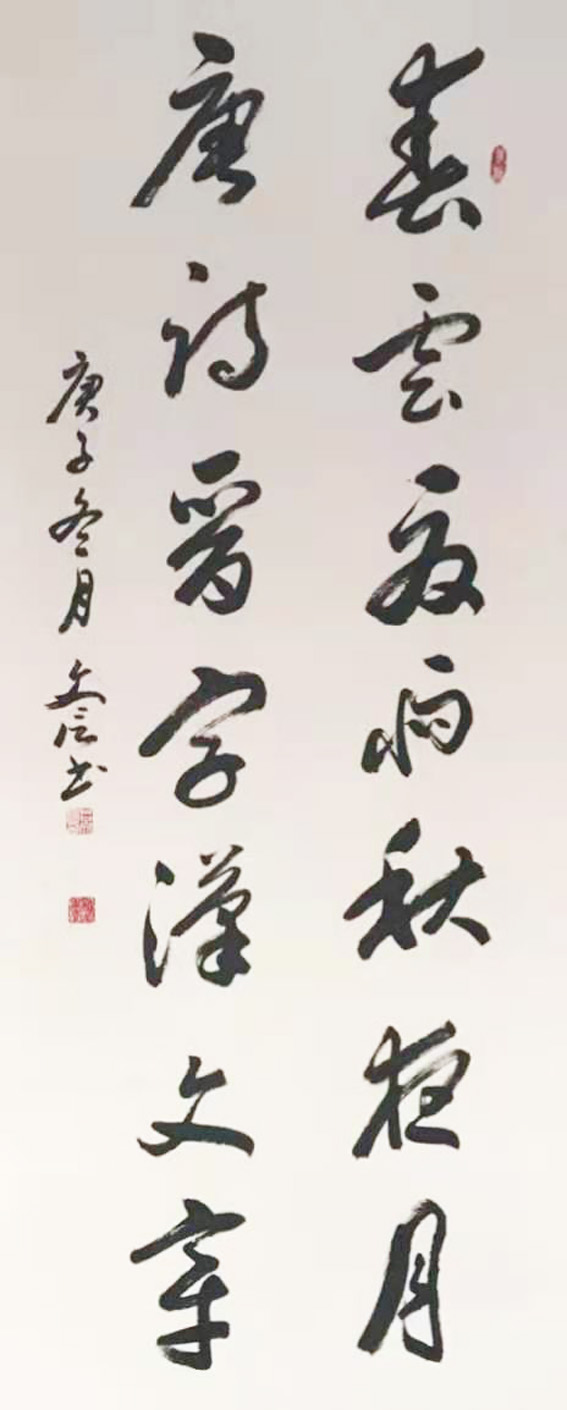 春雲夏雨秋夜月
唐詩晉字漢文章
庚子冬月文信书